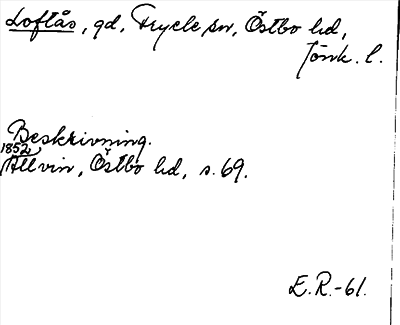 Loftås, gd, Tryele sn, Östbo hd,
Jönk. l.
Beskrivning.
1852
Allvin, Östbo hd, s. 69.
E.R.-61.